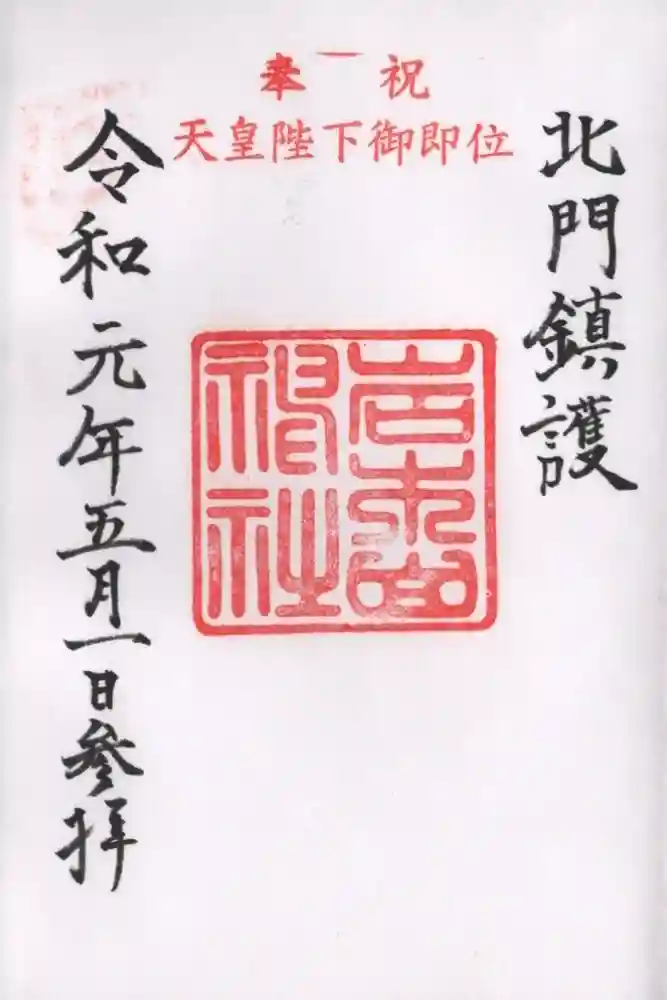 奉祝
天皇陛下御即位
北門鎮護
岩木山
神社
令和元年五月一日参拝